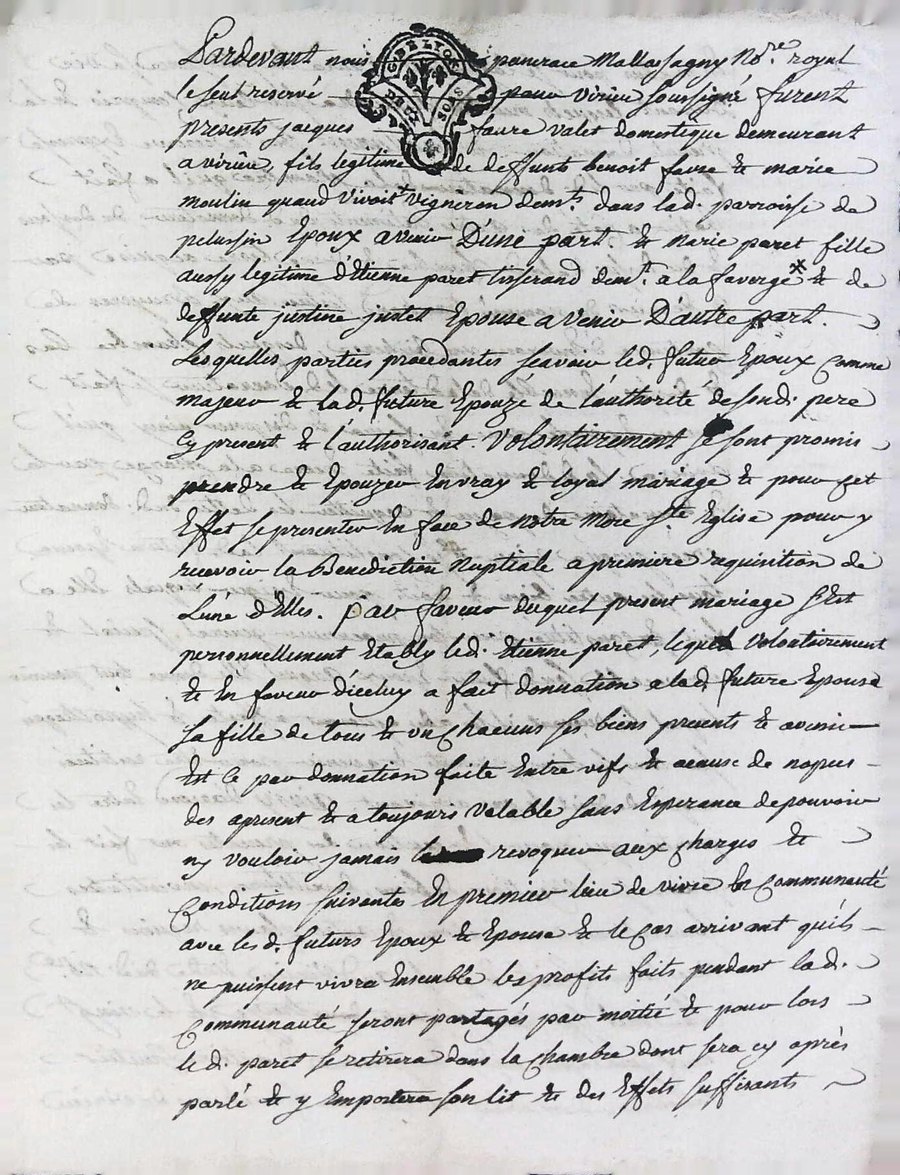 Pardevant nous pancrace Mallassagny No.re royal
le seul reservé pour virieu soussigné furent
presents jacques faure valet domestique demeurant
a virieu, fils legitime de deffunts benoit faure & marie
moulin quand vivoit vigneron demt. dans lad. parroisse de
pelussin Epoux avenir D'une part. & marie paret fille
aussy legitime d'Etienne paret tisserand demt. a la faverge & de
deffunte justine justet Epouse avenir D'autre part.
Lesquelles parties procedantes scavoir led. futur Epoux comme
majeur & lad. future Epouze de l'authorité de sondi. pere
Cy present & l'authorisant. Volontairement se sont promis
prendre & Epouzer En vray & loyal mariage & pour cet
Effet se presenter En face de notre mere Ste Eglise pour y
recevoir la Benediction Nuptiale a premiere requisition de
L'une d'Elles. par faveur duquel present mariage s'Est
personnellement Etably led. Etienne paret, lequel volontairement
& En faveur d'iceluy a fait donnation a lad. future Epouse
sa fille de tous & un chacuns ses biens presents & avenir
Est Ce par donnation faite Entre vifs & acause de nopces
des apresent & a toujours valable sans Esperance de pouvoir
ny vouloir jamais revoquer aux charges &
Conditions suivantes En premier lieu de vivre En Communauté
avec lesd. futurs Epoux & Epouse & le cas arrivant qu'ils
ne puissent vivre Ensemble les profits faits pendant lad.
Communauté seront partagés par moitié & pour lors
led. paret se retirera dans la chambre dont sera cy après
parlé & y Emportera son lit & des Effets suffisants